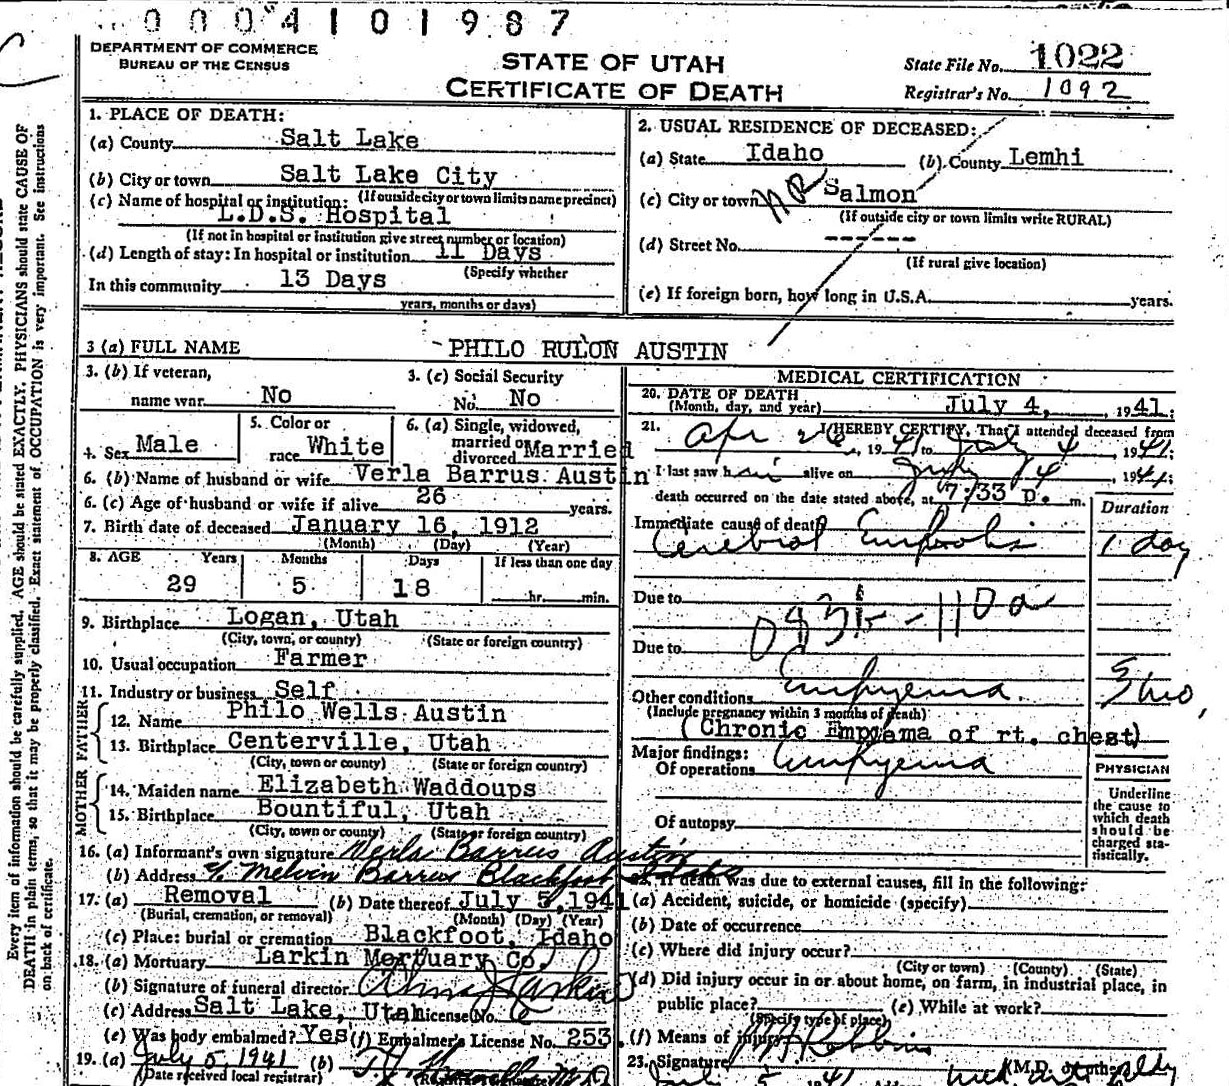 0004101987
DEPARTMENT OF COMMERCE
BUREAU OF THE CENSUS
STATE OF UTAH
CERTIFICATE OF DEATH
State File No. 1022
Registrar's No. 1092
1. PLACE OF DEATH:
(a) County Salt Lake
(b) City or town Salt Lake City
(c) Name of hospital or institution: (If outside city or town limits name precinct)
L.D.S. Hospital
(If not in hospital or institution give street number or location)
(d) Length of stay: In hospital or institution 11 Days
(Specify whether
In this community 13 Days
years, months or days)
2. USUAL RESIDENCE OF DECEASED:
(a) State Idaho (b) County Lemhi
(c) City or town NR Salmon
(If outside city or town limits write RURAL)
(d) Street No. -------
(If rural give location)
(e) If foreign born, how long in U.S.A. years.
3 (a) FULL NAME PHILO RULON AUSTIN
3. (b) If veteran,
name war No
3. (c) Social Security
No. No
4. Sex Male
5. Color or
race White
6. (a) Single, widowed,
married or
divorced Married
6. (b) Name of husband or wife Verla Barrus Austin
6. (c) Age of husband or wife if alive 26 years.
7. Birth date of deceased January 16, 1912
(Month) (Day) (Year)
8. AGE Years Months Days If less than one day
29 5 18 hr. min.
9. Birthplace Logan, Utah
(City, town, or county) (State or foreign country)
10. Usual occupation Farmer
11. Industry or business Self
FATHER
12. Name Philo Wells Austin
13. Birthplace Centerville, Utah
(City, town or county) (State or foreign country)
MOTHER
14. Maiden name Elizabeth Waddoups
15. Birthplace Bountiful, Utah
(City, town or county) (State or foreign country)
16. (a) Informant's own signature Verla Barrus Austin
(b) Address % Melvin Barrus Blackfoot Idaho
17. (a) Removal (b) Date thereof July 5, 1941
(Burial, cremation, or removal) (Month) (Day) (Year)
(c) Place: burial or cremation Blackfoot, Idaho
18. (a) Mortuary Larkin Mortuary Co.
(b) Signature of funeral director
(c) Address Salt Lake, Utah License No.
(e) Was body embalmed? Yes (f) Embalmer's License No. 253
19. (a) July 5, 1941 (b)
(Date received local registrar)
MEDICAL CERTIFICATION
20. DATE OF DEATH
(Month, day, and year) July 4, 1941;
21. I HEREBY CERTIFY, That I attended deceased from
Apr 26, 1941 to July 4 1941;
I last saw him alive on July 4, 1941;
death occurred on the date stated above, at 7:33 p. m.
Duration
Immediate cause of death
Cerebral Embolis 1 day
Due to
Due to
Other conditions Empyema.
(Include pregnancy within 3 months of death)
(Chronic Empyema of rt. chest)
Major findings:
Of operations Empyema
Of autopsy
PHYSICIAN
Underline
the cause to
which death
should be
charged sta-
tistically.
22. If death was due to external causes, fill in the following:
(a) Accident, suicide, or homicide (specify)
(b) Date of occurrence
(c) Where did injury occur?
(City or town) (County) (State)
(d) Did injury occur in or about home, on farm, in industrial place, in
public place? (e) While at work?
(Specify type of place)
(f) Means of injury
23. Signature (M.D. or other)
Every item of information should be carefully supplied. AGE should be stated EXACTLY. PHYSICIANS should state CAUSE OF
DEATH in plain terms, so that it may be properly classified. Exact statement of OCCUPATION is very important. See instructions
on back of certificate.